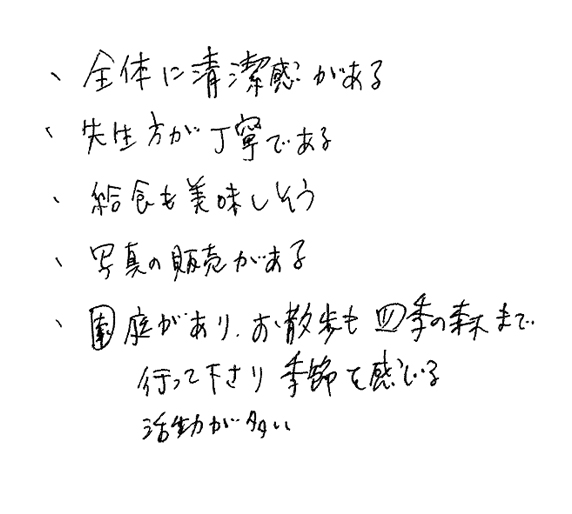 、全体に清潔感がある
、先生方が丁寧である
、給食も美味しそう
、写真の販売がある
、園庭があり、お散歩も四季の森まで
行って下さり季節を感じる
活動が多い